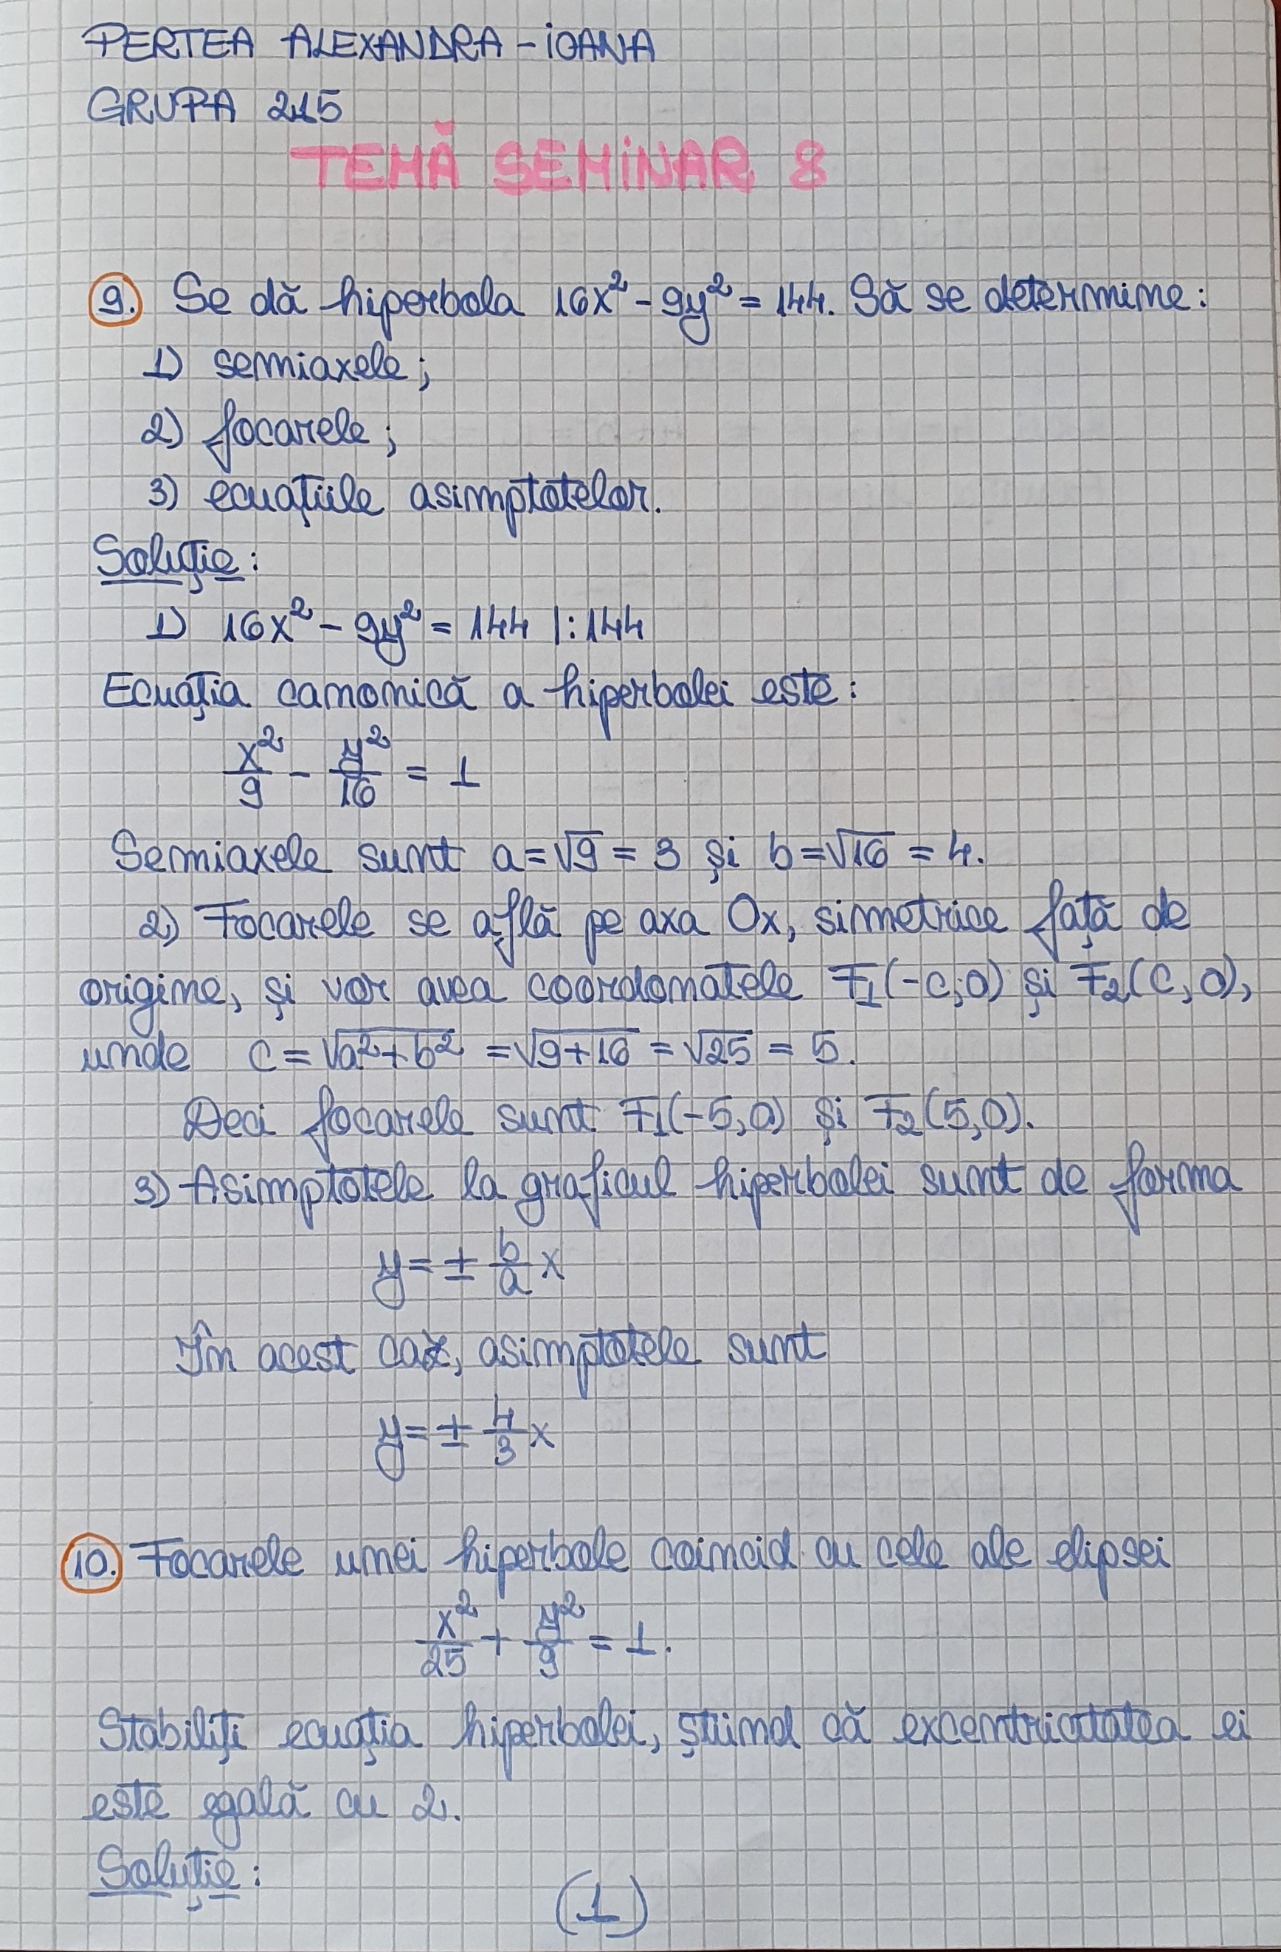 PERTEA ALEXANDRA - IOANA
GRUPA 215
TEMĂ SEMINAR 8
9. Se dă hiperbola 16x² - 9y² = 144. Să se determine:
1) semiaxele;
2) focarele;
3) ecuațiile asimptotelor.
Soluție:
1) 16x² - 9y² = 144 |:144
Ecuația canonică a hiperbolei este:
x²/9 - y²/16 = 1
Semiaxele sunt a=√9 = 3 și b=√16 = 4.
2) Focarele se află pe axa Ox, simetrice față de
origine, și vor avea coordonatele F₁(-c,0) și F₂(c,0),
unde c = √(a²+b²) = √(9+16) = √25 = 5.
Deci focarele sunt F₁(-5,0) și F₂(5,0).
3) Asimptotele la graficul hiperbolei sunt de forma
y = ± b/a x
În acest caz, asimptotele sunt
y = ± 4/3 x
10. Focarele unei hiperbole coincid cu cele ale elipsei
x²/25 + y²/9 = 1.
Stabiliți ecuația hiperbolei, știind că excentricitatea ei
este egală cu 2.
Soluție:
(1)